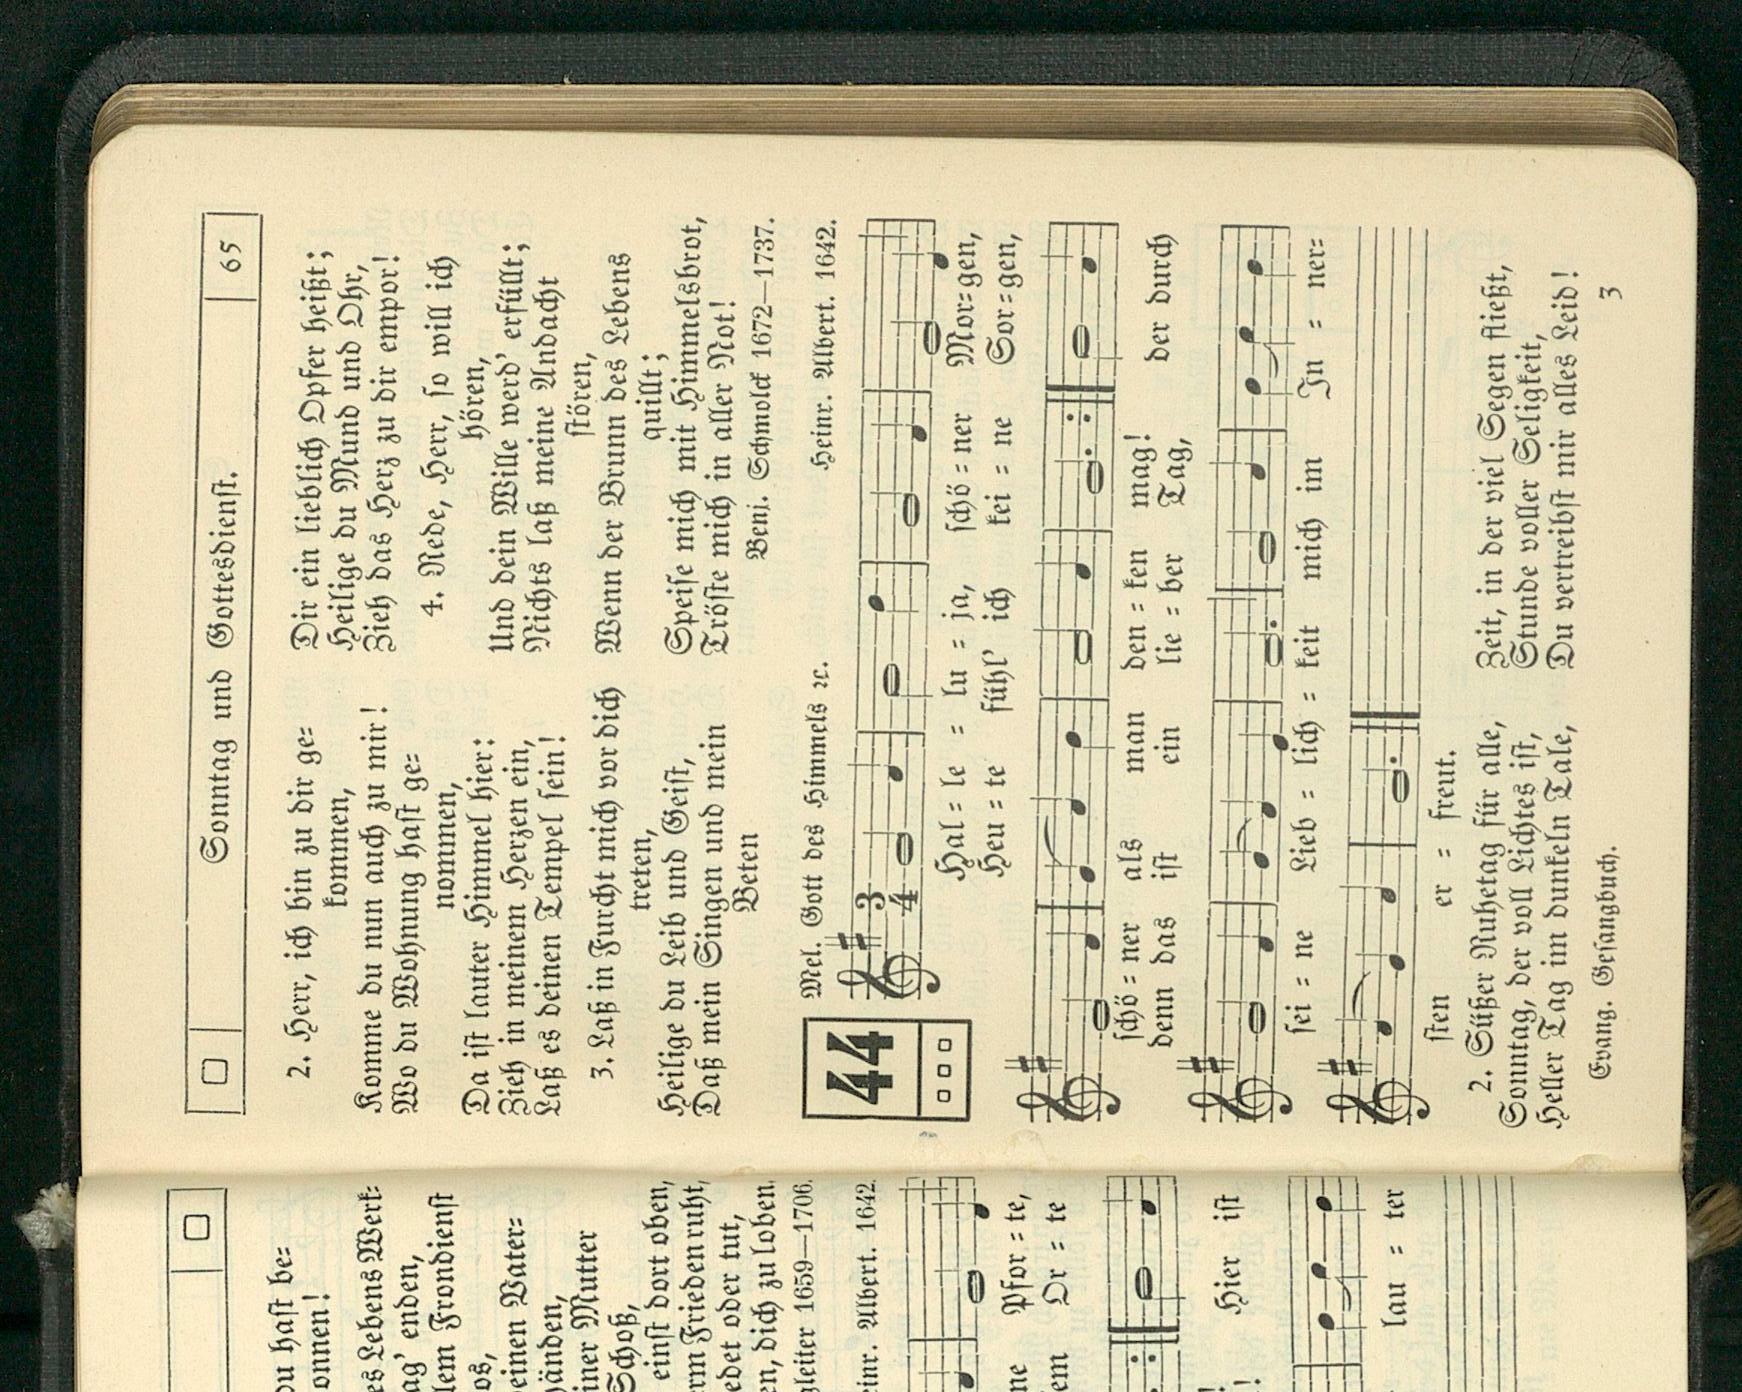 du hast be=
onnen!
es Lebens Werk=
ag' enden,
lem Frondienst
los,
einen Vater=
händen,
iner Mutter
Schoß,
einst dort oben,
ern Frieden ruht,
edet oder tut,
en, dich zu loben.
gleiter 1659—1706.
einr. Albert. 1642.
ne Pfor = te,
em Or = te
Hier ist
lau = ter
Sonntag und Gottesdienst. 65
2. Herr, ich bin zu dir ge=
kommen,
Komme du nun auch zu mir!
Wo du Wohnung hast ge=
nommen,
Da ist lauter Himmel hier:
Zieh in meinem Herzen ein,
Laß es deinen Tempel sein!
3. Laß in Furcht mich vor dich
treten,
Heilige du Leib und Geist,
Daß mein Singen und mein
Beten
Dir ein lieblich Opfer heißt;
Heilige du Mund und Ohr,
Zieh das Herz zu dir empor!
4. Rede, Herr, so will ich
hören,
Und dein Wille werd' erfüllt;
Nichts laß meine Andacht
stören,
Wenn der Brunn des Lebens
quillt;
Speise mich mit Himmelsbrot,
Tröste mich in aller Not!
Benj. Schmolck 1672—1737.
44
Mel. Gott des Himmels ꝛc. Heinr. Albert. 1642.
3
4
Hal = le = lu = ja, schö = ner Mor=gen,
Heu = te fühl' ich kei = ne Sor=gen,
schö = ner als man den = ken mag! der durch
denn das ist ein lie = ber Tag,
sei = ne Lieb = lich = keit mich im In = ner=
sten er = freut.
2. Süßer Ruhetag für alle,
Sonntag, der voll Lichtes ist,
Heller Tag im dunkeln Tale,
Zeit, in der viel Segen fließt,
Stunde voller Seligkeit,
Du vertreibst mir alles Leid!
Evang. Gesangbuch. 3